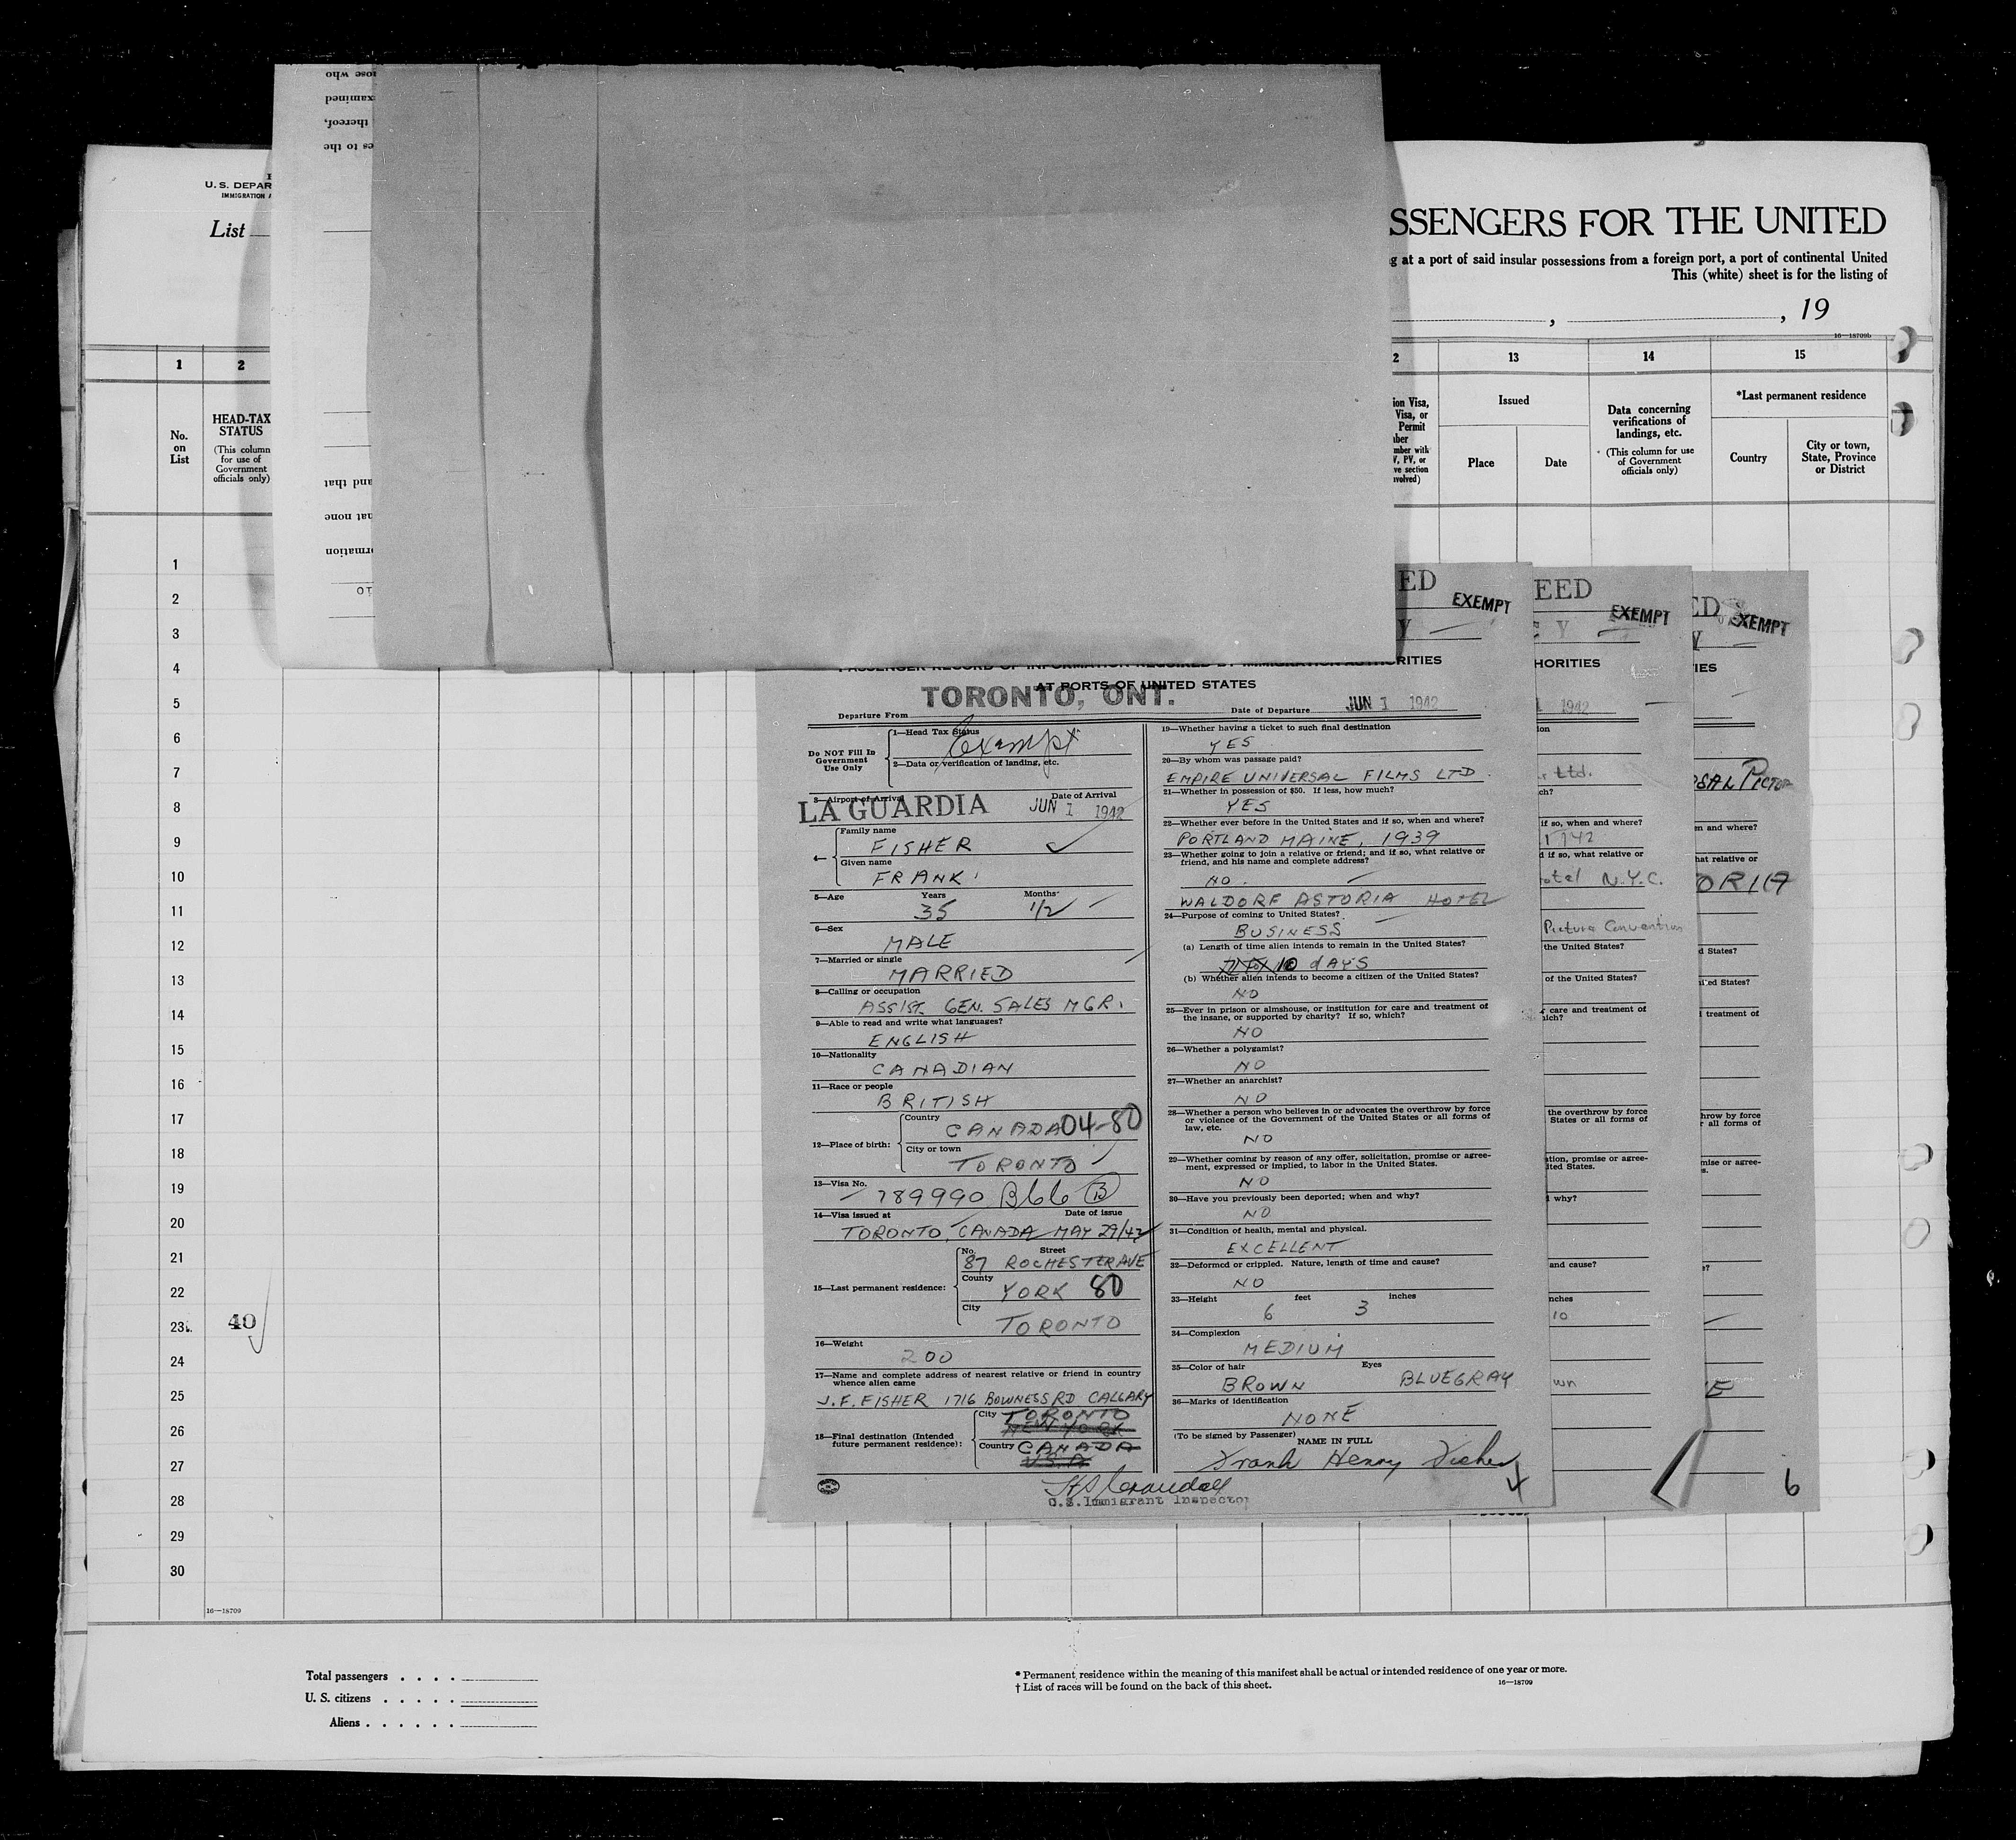 U. S. DEPAR
IMMIGRATION A
List
ose who
examined
thereof,
es to the
and that
hat none
ormation
SSENGERS FOR THE UNITED
g at a port of said insular possessions from a foreign port, a port of continental United
This (white) sheet is for the listing of
, , 19
16—18709b
1 2
No. on List
HEAD-TAX STATUS
(This column for use of Government officials only)
2 13 14 15
ion Visa,
Visa, or
Permit
ber
mber with
V, PV, or
ve section
nvolved)
Issued
Place Date
Data concerning verifications of landings, etc.
(This column for use of Government officials only)
*Last permanent residence
Country
City or town, State, Province or District
1
2
3
4
5
6
7
8
9
10
11
12
13
14
15
16
17
18
19
20
21
22
23 40
24
25
26
27
28
29
30
16—18709
ED EXEMPT
Y
PASSENGER RECORD OF INFORMATION REQUIRED BY IMMIGRATION AUTHORITIES
AT PORTS OF UNITED STATES
Departure From TORONTO, ONT. Date of Departure JUN 1 1942
Do NOT Fill In Government Use Only
1—Head Tax Status Exempt
2—Data or verification of landing, etc.
3—Airport of Arrival LA GUARDIA Date of Arrival JUN 1 1942
4— Family name FISHER
Given name FRANK
5—Age Years 35 Months 1/2
6—Sex MALE
7—Married or single MARRIED
8—Calling or occupation
ASSIST. GEN. SALES MGR.
9—Able to read and write what languages?
ENGLISH
10—Nationality CANADIAN
11—Race or people BRITISH
12—Place of birth: Country CANADA 04-80
City or town TORONTO
13—Visa No. 789990 B66 B
14—Visa issued at Date of issue
TORONTO, CANADA MAY 29/42
15—Last permanent residence: No. Street
87 ROCHESTER AVE
County YORK 80
City TORONTO
16—Weight 200
17—Name and complete address of nearest relative or friend in country whence alien came
J. F. FISHER 1716 BOWNESS RD CALGARY
18—Final destination (Intended future permanent residence): City TORONTO
NEW YORK
Country CANADA
U.S.A
U.S. Immigrant Inspector
19—Whether having a ticket to such final destination
YES
20—By whom was passage paid?
EMPIRE UNIVERSAL FILMS LTD.
21—Whether in possession of $50. If less, how much?
YES
22—Whether ever before in the United States and if so, when and where?
PORTLAND MAINE, 1939
23—Whether going to join a relative or friend; and if so, what relative or friend, and his name and complete address?
NO.
WALDORF ASTORIA HOTEL
24—Purpose of coming to United States?
BUSINESS
(a) Length of time alien intends to remain in the United States?
10 dAYS
(b) Whether alien intends to become a citizen of the United States?
NO
25—Ever in prison or almshouse, or institution for care and treatment of the insane, or supported by charity? If so, which?
NO
26—Whether a polygamist?
NO
27—Whether an anarchist?
NO
28—Whether a person who believes in or advocates the overthrow by force or violence of the Government of the United States or all forms of law, etc.
NO
29—Whether coming by reason of any offer, solicitation, promise or agreement, expressed or implied, to labor in the United States.
NO
30—Have you previously been deported; when and why?
NO
31—Condition of health, mental and physical.
EXCELLENT
32—Deformed or crippled. Nature, length of time and cause?
NO
33—Height 6 feet 3 inches
34—Complexion MEDIUM
35—Color of hair BROWN Eyes BLUEGRAY
36—Marks of identification
NONE
(To be signed by Passenger) NAME IN FULL
Frank Henry Fisher
EED EXEMPT
E Y
HORITIES
1 1942
ion
Ltd.
ch?
if so, when and where?
1942
d if so, what relative or
otel N.Y.C.
Picture Convention
the United States?
of the United States?
r care and treatment of
hich?
the overthrow by force
States or all forms of
ation, promise or agree-
ited States.
d why?
and cause?
nches
10
wn
ED EXEMPT
Y
IES
SAL PICTOR
en and where?
hat relative or
ORIA
d States?
ited States?
d treatment of
hrow by force
r all forms of
mise or agree-
s.
e?
E
6
Total passengers . . . .
U. S. citizens . . . . .
Aliens . . . . . .
* Permanent residence within the meaning of this manifest shall be actual or intended residence of one year or more.
† List of races will be found on the back of this sheet. 16—18709